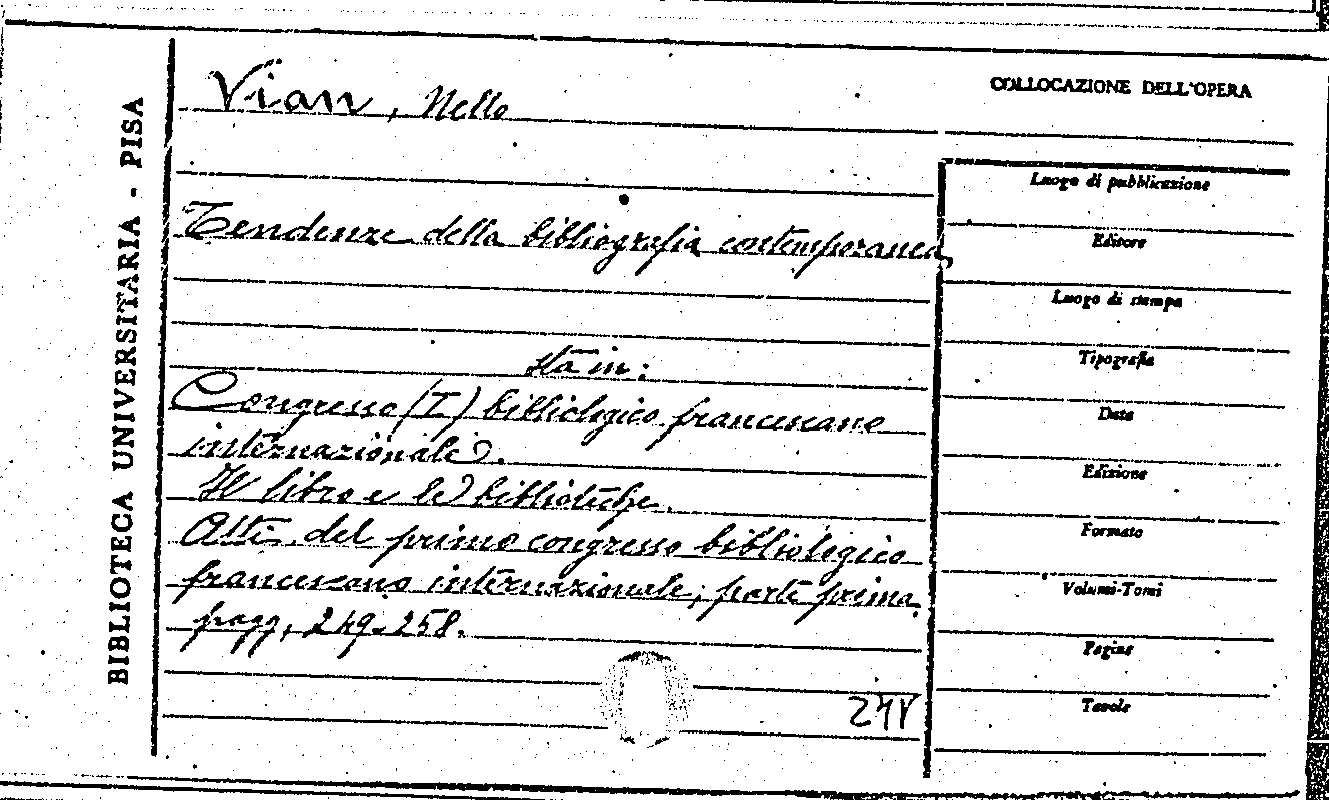 BIBLIOTECA UNIVERSITARIA - PISA
Vian, Nello
COLLOCAZIONE DELL'OPERA
Tendenze della bibliografia contemporanea,
sta in:
Congresso (I) bibliologico francescano
internazionale.
Il libro e le biblioteche.
Atti del primo congresso bibliologico
francescano internazionale; parte prima
pagg, 249-258.
Luogo di pubblicazione
Editore
Luogo di stampa
Tipografia
Data
Edizione
Formato
Volumi-Tomi
Pagine
Tavole